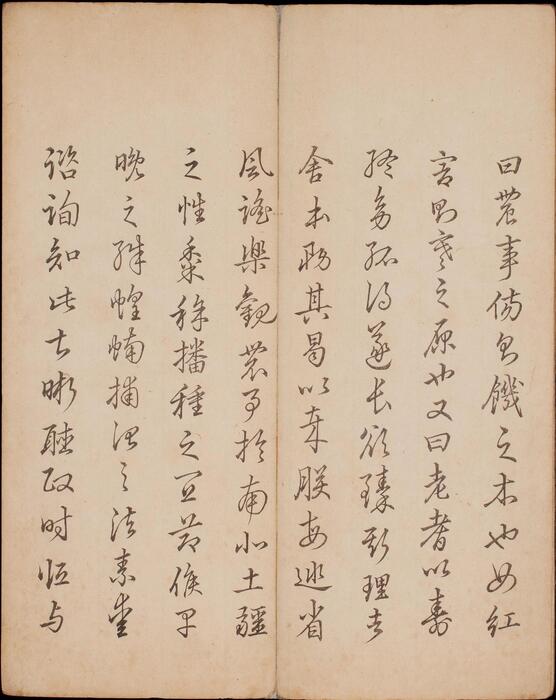 曰農事傷則饑之本也女紅
害則寒之原也又曰老耆以壽
終幼孤得遂長欲臻斯理者
舍本務其曷以哉朕每巡省
風謠樂觀農事於南北土疆
之性黍稌播種之宜節候早
晚之殊蝗蝻捕治之法素愛
諮詢知此甚晰聽政时恒与